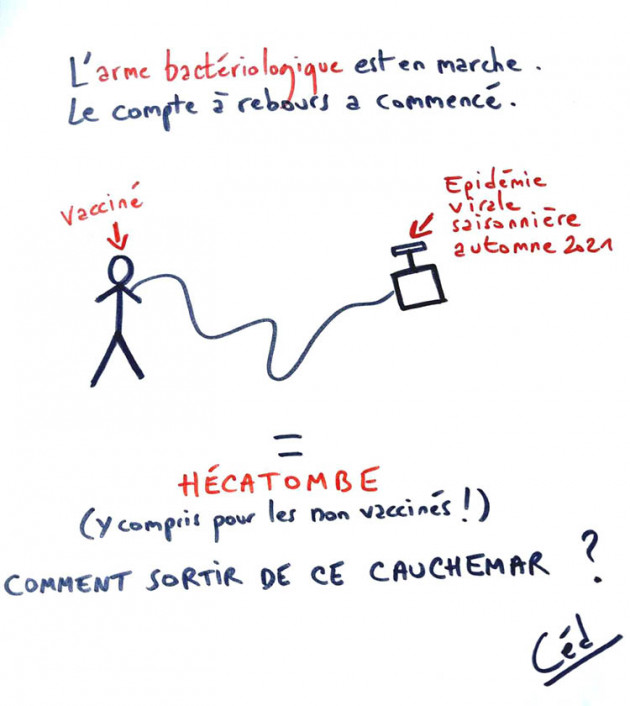 L'arme bactériologique est en marche.
Le compte à rebours a commencé.
Vacciné
Epidémie
virale
saisonnière
automne 2021
=
HÉCATOMBE
(y compris pour les non vaccinés !)
COMMENT SORTIR DE CE CAUCHEMAR ?
Céd